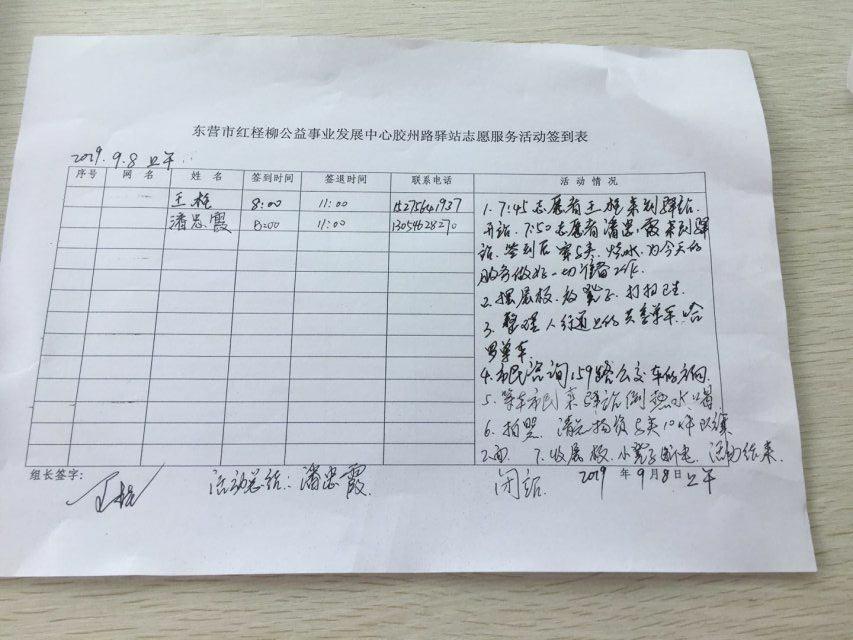 东营市红柽柳公益事业发展中心胶州路驿站志愿服务活动签到表
2019.9.8 上午
序号 网 名 姓 名 签到时间 签退时间 联系电话 活 动 情 况
王 8:00 11:00 15275641937
潘忠霞 8:00 11:00 13054628270
1. 7:45 志愿者王 来到驿站
开站. 7:50 志愿者潘忠霞来到驿
站. 签到后 烧水. 为今天的
服务做好一切准备工作.
2. 摆展板. 放凳子. 打扫卫生.
3. 整理人行道上的共享单车. 哈
罗单车.
4. 市民咨询159路公交车的方向.
5. 等车市民来驿站倒热水喝
6. 拍照.
7. 收展板. 小凳子断电. 活动结束.
组长签字: 王 活动总结: 潘忠霞. 闭站. 2019 年 9月8日上午